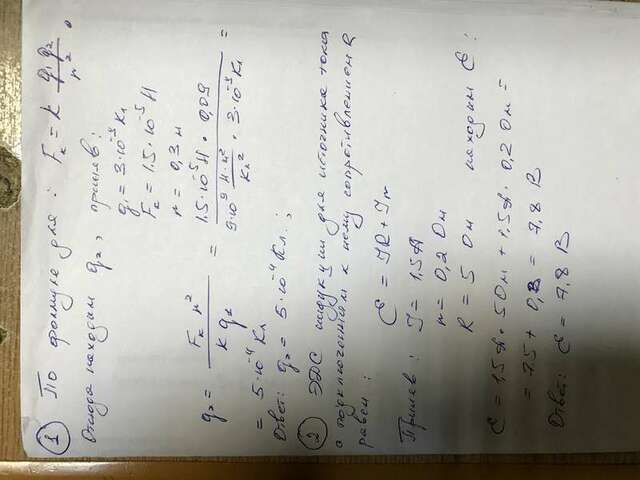 ① По формуле для: Fк = k q₁q₂/r².
Отсюда находим q₂, приняв:
q₁ = 3·10⁻³ Кл
Fк = 1,5·10⁻⁵ Н
r = 0,3 м
q₂ = Fк r²/k q₁ = 1,5·10⁻⁵ Н · 0,09/9·10⁹ Н·м²/Кл² · 3·10⁻³ Кл =
= 5·10⁻⁴ Кл
Ответ: q₂ = 5·10⁻⁴ Кл.;
② ЭДС индукции для источника тока
с подключенным к нему сопротивлением R
равен:
Ɛ = IR + Ir
Приняв: I = 1,5 А
r = 0,2 Ом
R = 5 Ом находим Ɛ:
Ɛ = 1,5А · 5Ом + 1,5А · 0,2 Ом =
= 7,5 + 0,3 = 7,8 В
Ответ: Ɛ = 7,8 В